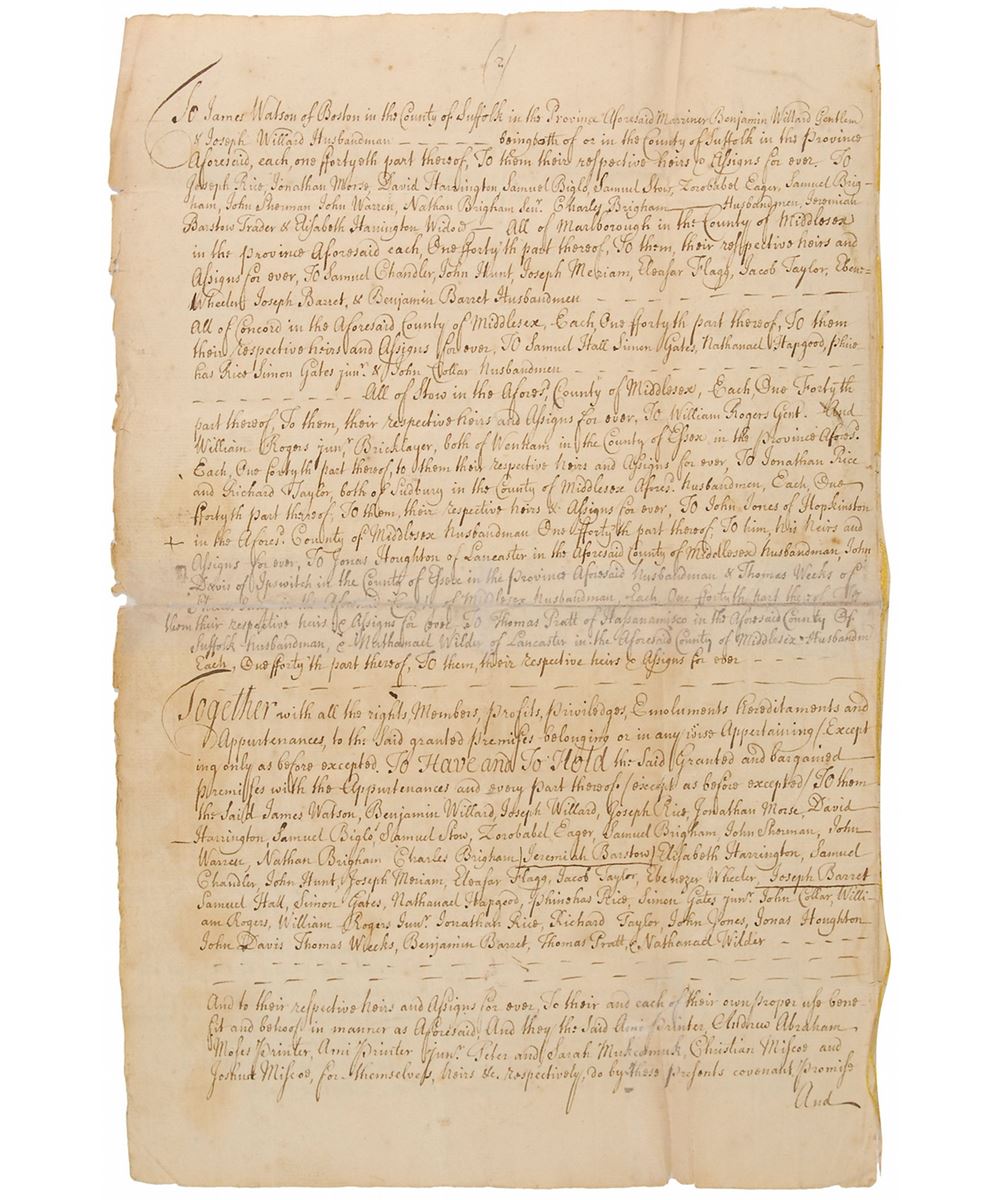 (2)
To James Watson of Boston in the County of Suffolk in the Province Aforesaid Marriner Benjamin Willard Gentlem
& Joseph Willard Husbandman — — — — being both of or in the County of Suffolk in the Province
Aforesaid, each, one fortyeth part thereof, To them their respective heirs & Assigns for ever. To
Joseph Rice, Jonathan Morse, David Harrington, Samuel Biglo, Samuel Stow, Zorobabel Eager, Samuel Brig-
ham, John Sherman John Warren, Nathan Brigham Senr. Charles Brigham — Husbandmen, Jeremiah
Barstow Trader & Elisabeth Harrington Widow — All of Marlborough in the County of Middlesex
in the Province Aforesaid each, One forty'th part thereof, To them, their respective heirs and
Assigns for ever, To Samuel Chandler, John Hunt, Joseph Meriam, Eleasar Flagg, Jacob Taylor, Eben=
Wheeler Joseph Barret, & Benjamin Barret Husbandmen — — — — — —
All of Concord in the Aforesaid County of Middlesex, Each, One ffortyth part thereof, To them
their respective heirs and Assigns for ever, To Samuel Hall Simon Gates, Nathanael Hapgood, Phine
has Rice Simon Gates junr. & John Collar Husbandmen — — — — — —
— — — — — — All of Stow in the Afores. County of Middlesex, Each, One Fortyth
part thereof, To them, their respective heirs and Assigns for ever, To William Rogers Gent. And
William Rogers junr. Bricklayer, both of Wenham in the County of Essex in the Province Afores.
Each, One fortyth part thereof, to them their respective heirs and Assigns for ever, To Jonathan Rice
and Richard Taylor, both of Sudbury in the County of Middlesex Afores. Husbandmen, Each, One
ffortyth part thereof, To them, their respective heirs & Assigns for ever, To John Jones of Hopkinston
+ in the Afores. County of Middlesex Husbandman One ffortyth part thereof, To him, his heirs and
Assigns for ever, To Jonas Houghton of Lancaster in the Aforesaid County of Middlesex Husbandman, John
Davis of Ipswitch in the County of Essex in the Province Aforesaid Husbandman & Thomas Weeks of
in the Aforesaid County of Middlesex Husbandman, Each, One fortyth part thereof
them their respective heirs & Assigns for ever, To Thomas Pratt of Hassanamisco in the Aforesaid County Of
Suffolk Husbandman, & Nathanael Wilder of Lancaster in the Aforesaid County of Middlesex Husbandm
Each, One forty'th part thereof, To them, their respective heirs & Assigns for ever — — — —
Together with all the rights, Members, profits, priviledges, Emoluments Hereditaments and
Appurtenances, to the Said granted Premises belonging or in any wise Appertaining (Except
ing only as before excepted. To Have and To Hold the Said Granted and bargained
premisses with the Appurtenances and every part thereof (except as before excepted) To them
the Said James Watson, Benjamin Willard, Joseph Willard, Joseph Rice, Jonathan Morse, David
Harrington, Samuel Biglo, Samuel Stow, Zorobabel Eager, Samuel Brigham, John Sherman, John
Warren, Nathan Brigham Charles Brigham, Jeremiah Barstow, Elisabeth Harrington, Samuel
Chandler, John Hunt, Joseph Meriam, Eleasar Flagg, Jacob Taylor, Ebenezer Wheeler, Joseph Barret
Samuel Hall, Simon Gates, Nathanael Hapgood, Phinehas Rice, Simon Gates junr. John Collar, Willi-
am Rogers, William Rogers Junr. Jonathan Rice, Richard Taylor, John Jones, Jonas Houghton
John Davis Thomas Weeks, Benjamin Barret, Thomas Pratt, & Nathanael Wilder — — — —
And to their respective heirs and Assigns for ever, To their and each of their own proper use bene-
fit and behoof in manner as Aforesaid, And they the Said Ami Printer, Andrew Abraham
Moses Printer, Ami Printer junr. Peter and Sarah Muckamuk, Christian Miscoe and
Joshua Miscoe, for themselves, heirs &c. respectively, do by these presents covenant, promise
And